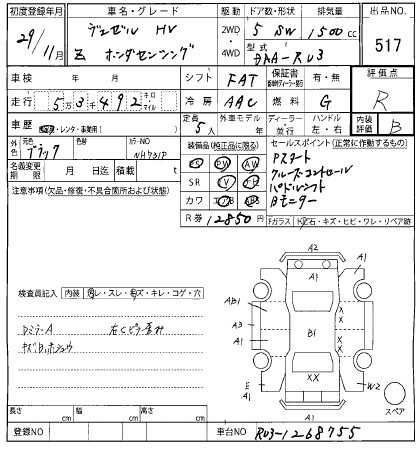 初度登録年月 車名・グレード 駆動 ドア数・形状 排気量 出品NO.
29/11月 ヴェゼル HV 2WD・4WD 5 SW 1500cc 517
Z ホンダセンシング 型式 DAA-RU3
車検 年 月 シフト FAT 保証書 有・無 評価点
走行 5万3千492 キロ マイル 冷房 AAC 燃料 G R
車歴 レンタ・事業用 定員 5人 外車モデル 年 ディーラー 並行 ハンドル 左・右 内装評価 B
外色 元色 ブラック 色替 カラーNO NH731P 装備品(純正品に限る) セールスポイント(正常に作動するもの)
名義変更期限 月 日迄 積載 t PS PW Pスタート
注意事項(欠品・修復・不具合箇所および状態) SR クルーズコントロール
カワ パドルシフト
Bモニター
R券 12850円 Fガラス 飛石・キズ・ヒビ・ワレ・リペア跡
A2
A1 A1
検査員記入 内装 スレ・キズ・キレ・コゲ・穴
AB1
Dミラー A 右Cピラー歪み A3 B1 X
A1 X
XX
E A1 W2
A1 スペア
長さ cm 幅 cm 高さ cm
登録NO 車台NO RU3-1268755